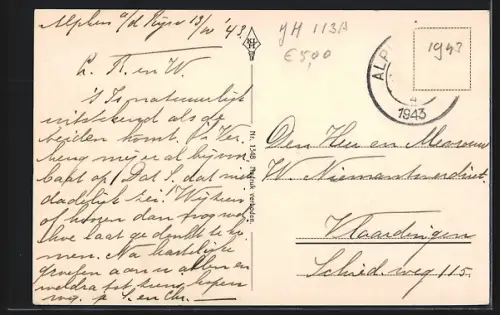 Alphen a/d Rijn 13/10 '43.
L. R. en W.
't Is natuurlijk
uitstekend als de
beiden komt.
dat S. dat niet
dadelijk zei! Wij
of hooren dan nog wel
hoe laat ge denkt te ko-
men. Na hartelijke
groeten aan u allen en
weldra tot ziens, hopen
we.
Nr. 1348 Nadruk verboden.
JH 113A
€ 5,00
1943
ALP
1943
Den Heer en Mevrouw
W. Niemantsverdriet.
Vlaardingen
Schied. weg 115.